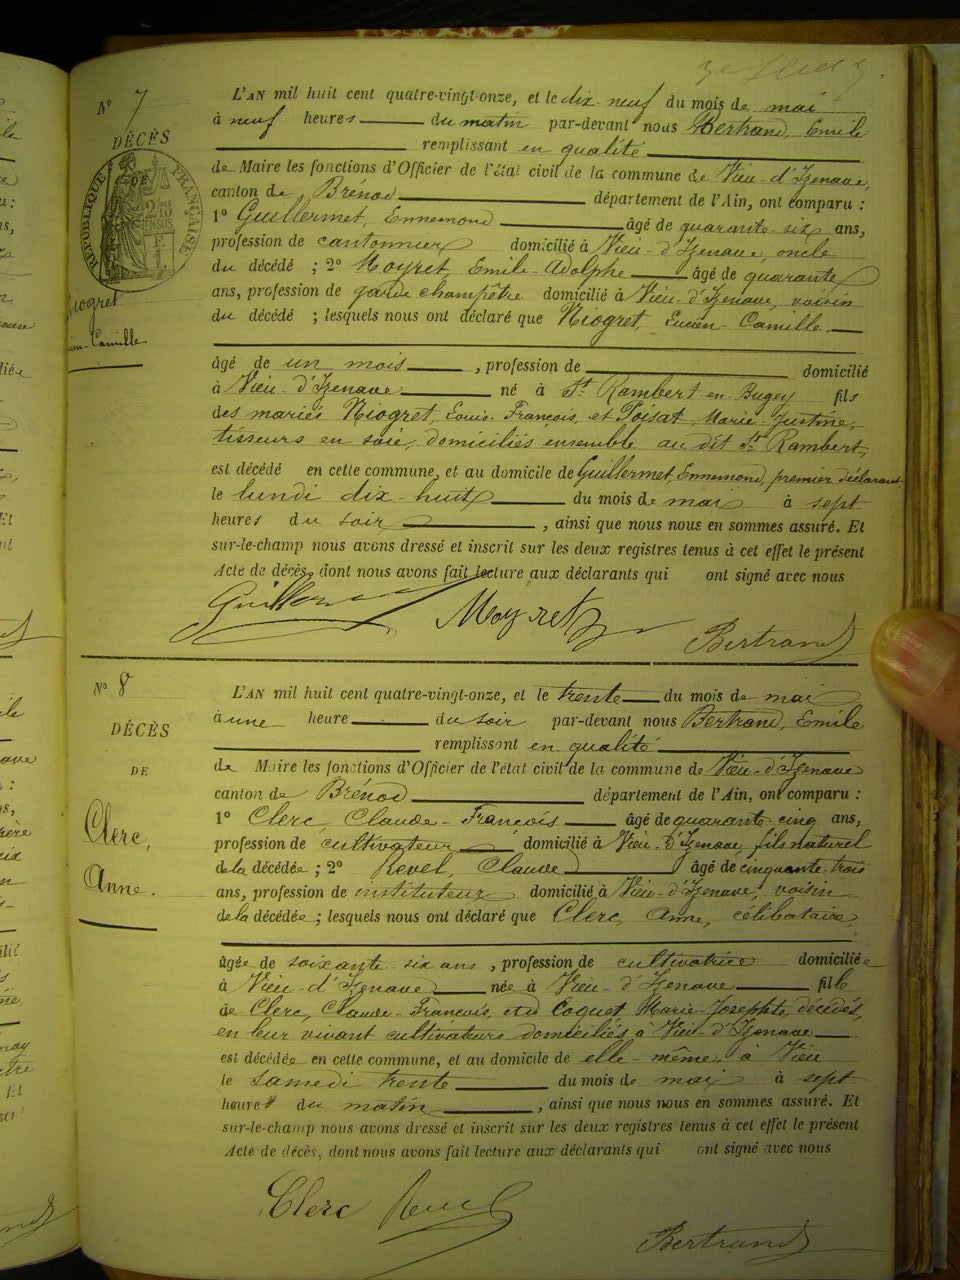 3e feuillet.
N° 7
DÉCÈS
DE
RÉPUBLIQUE FRANÇAISE
Niogret
Lucien-Camille
L'AN mil huit cent quatre-vingt-onze, et le dix-neuf du mois de mai
à neuf heures du matin par-devant nous Bertrand, Emile
remplissant en qualité
de Maire les fonctions d'Officier de l'état civil de la commune de Vieu-d'Izenave,
canton de Brénod département de l'Ain, ont comparu :
1° Guillermet, Ennemond âgé de quarante-six ans,
profession de cantonnier domicilié à Vieu-d'Izenave, oncle
du décédé ; 2° Moyret, Emile-Adolphe âgé de quarante
ans, profession de garde champêtre domicilié à Vieu-d'Izenave, voisin
du décédé ; lesquels nous ont déclaré que Niogret, Lucien-Camille.
âgé de un mois, profession de domicilié
à Vieu-d'Izenave né à St Rambert-en-Bugey fils
des mariés Niogret, Louis-François, et Poisat, Marie-Justine,
tisseurs en soie, domiciliés ensemble au dit St Rambert,
est décédé en cette commune, et au domicile de Guillermet, Ennemond, premier déclarant
le lundi dix-huit du mois de mai à sept
heures du soir, ainsi que nous nous en sommes assuré. Et
sur-le-champ nous avons dressé et inscrit sur les deux registres tenus à cet effet le présent
Acte de décès, dont nous avons fait lecture aux déclarants qui ont signé avec nous
Guillermet Moyret Bertrand
N° 8
DÉCÈS
DE
Clerc,
Anne.
L'AN mil huit cent quatre-vingt-onze, et le trente du mois de mai
à une heure du soir par-devant nous Bertrand, Emile
remplissant en qualité
de Maire les fonctions d'Officier de l'état civil de la commune de Vieu-d'Izenave
canton de Brénod département de l'Ain, ont comparu :
1° Clerc, Claude-François âgé de quarante-cinq ans,
profession de cultivateur domicilié à Vieu-d'Izenave, fils naturel
de la décédée ; 2° Revel, Claude âgé de cinquante-trois
ans, profession de instituteur domicilié à Vieu-d'Izenave, voisin
de la décédée ; lesquels nous ont déclaré que Clerc, Anne, célibataire,
âgée de soixante-six ans, profession de cultivatrice domiciliée
à Vieu-d'Izenave née à Vieu-d'Izenave fille
de Clerc, Claude-François, et de Coquet, Marie-Josephte, décédés,
en leur vivant cultivateurs domiciliés à Vieu-d'Izenave
est décédée en cette commune, et au domicile de elle-même, à Vieu
le samedi trente du mois de mai à sept
heures du matin, ainsi que nous nous en sommes assuré. Et
sur-le-champ nous avons dressé et inscrit sur les deux registres tenus à cet effet le présent
Acte de décès, dont nous avons fait lecture aux déclarants qui ont signé avec nous
Clerc Revel
Bertrand